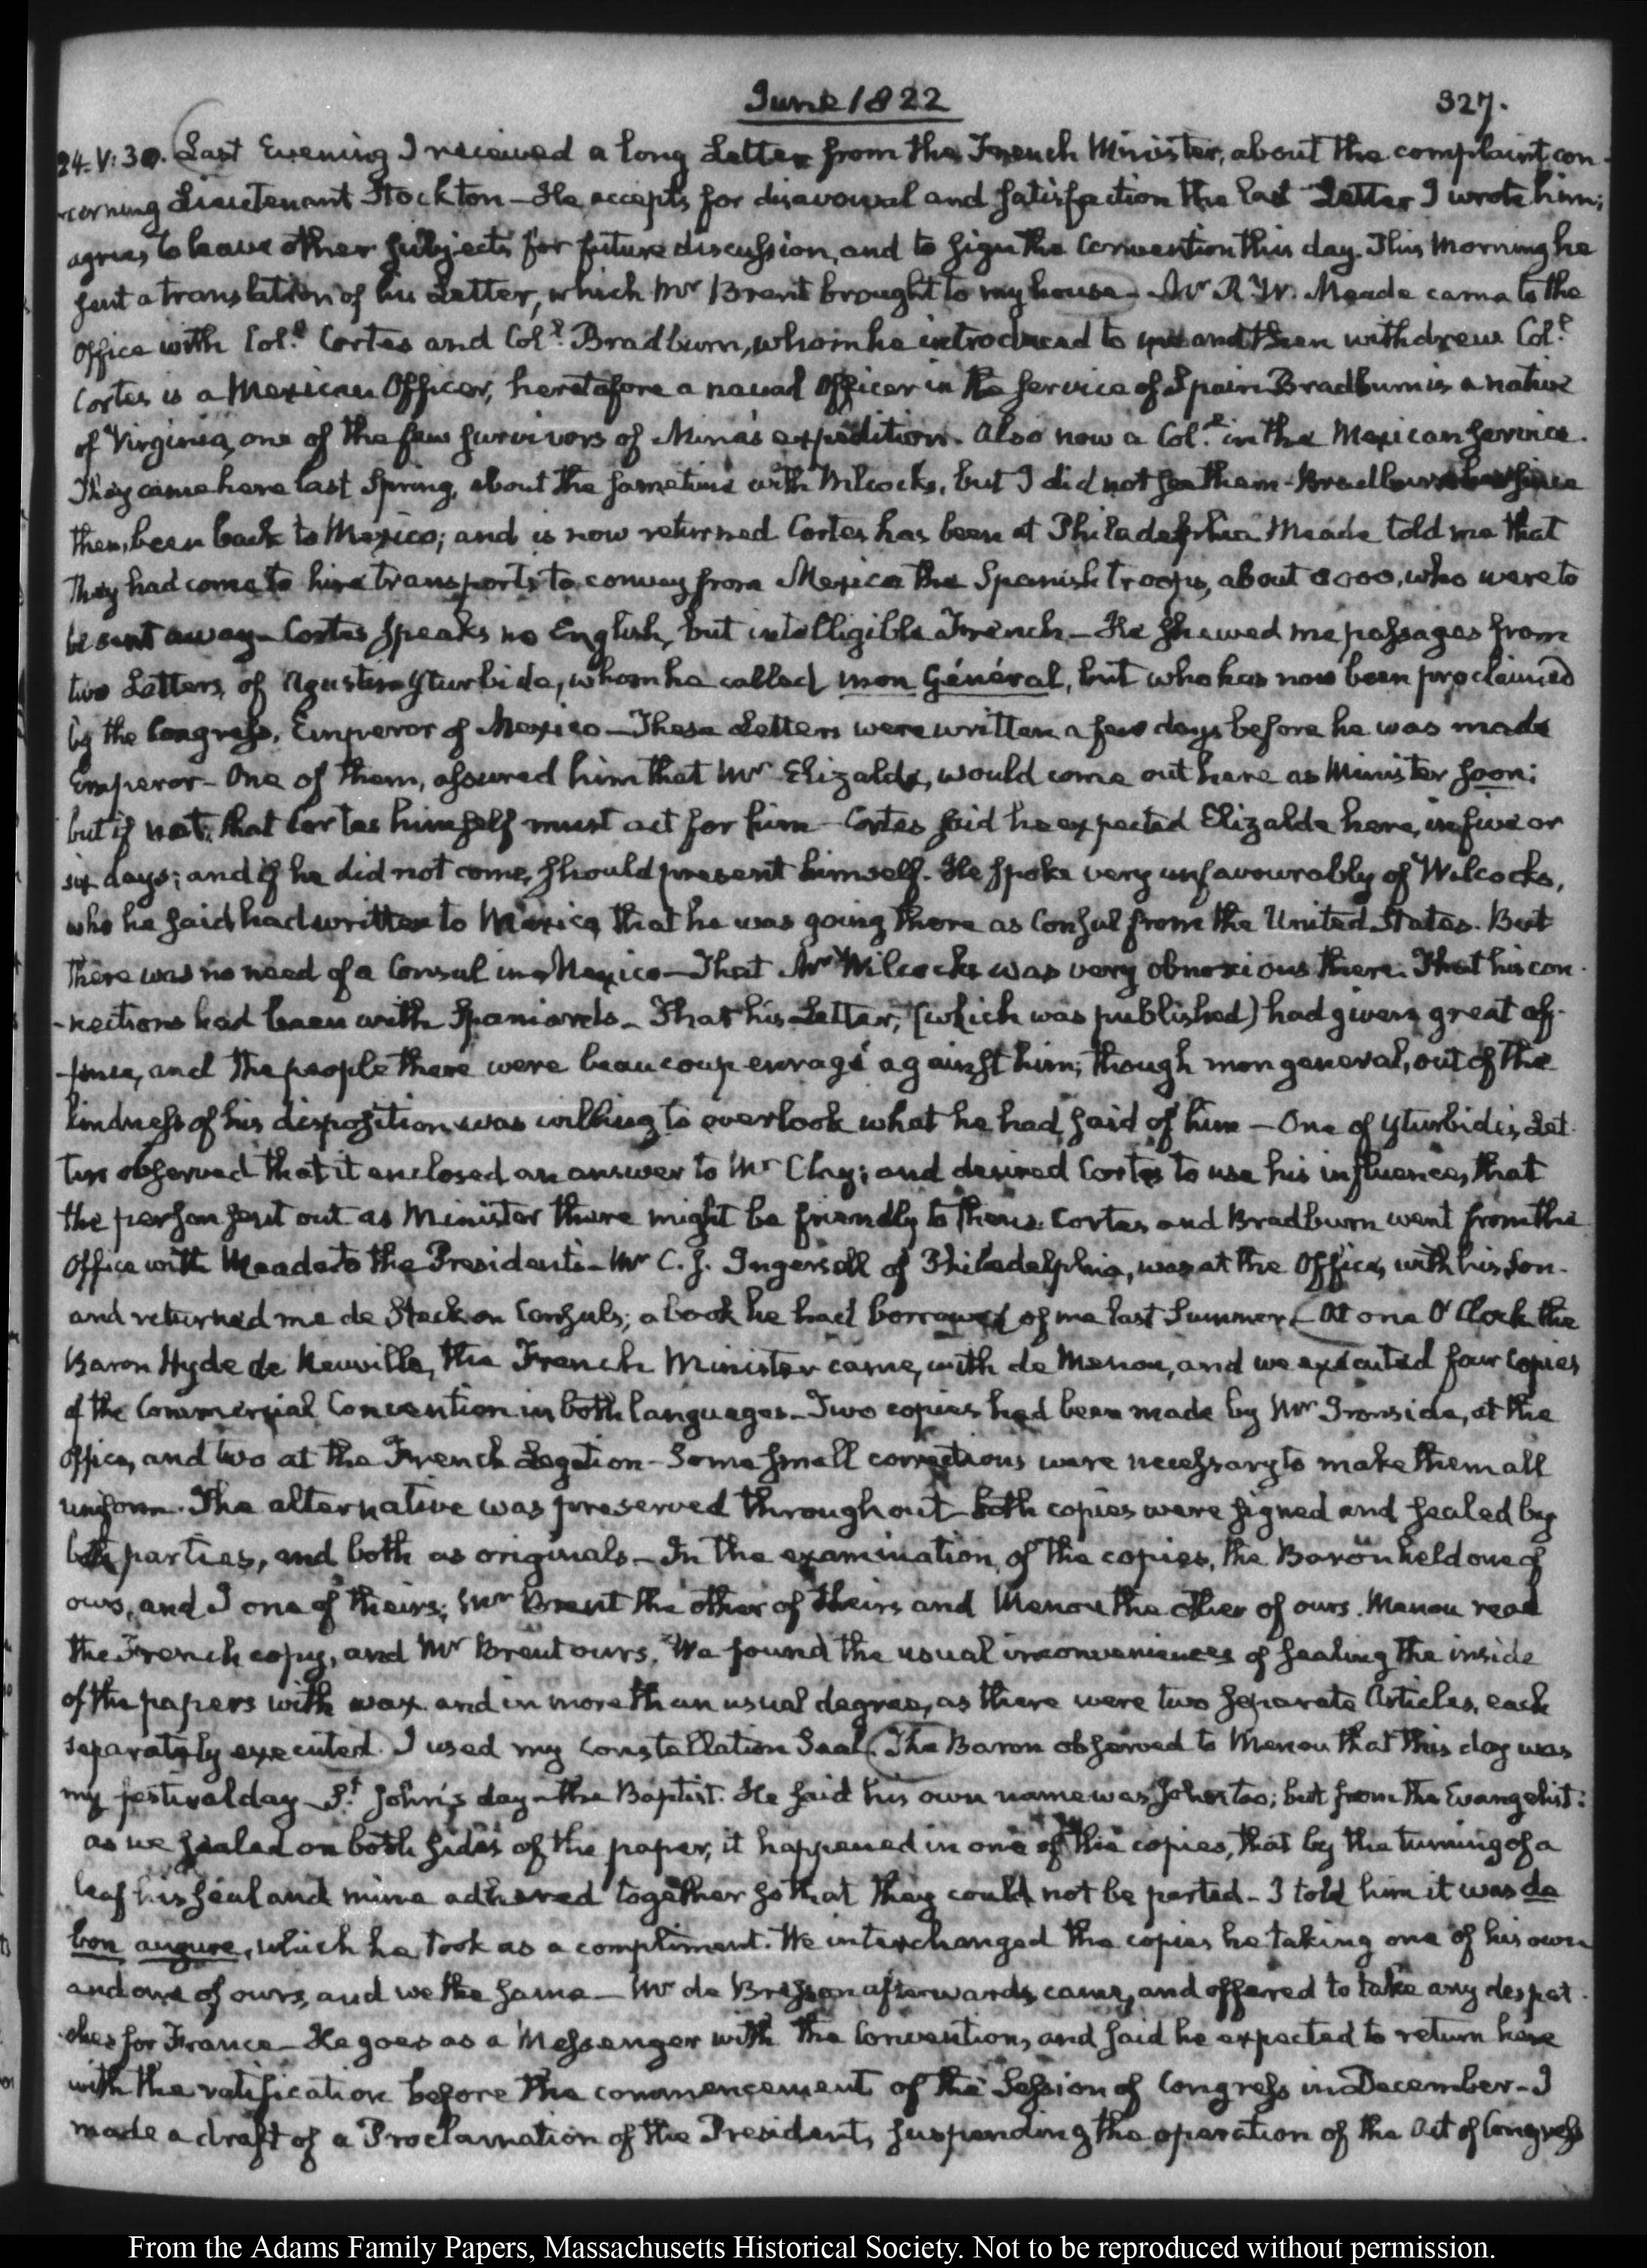 June 1822
327.
24. V:30. Last Evening I received a long Letter from the French Minister, about the complaint con-
-cerning Lieutenant Stockton—He accepts for disavowal and satisfaction the last Letter I wrote him;
agrees to leave other subjects for future discussion, and to sign the Convention this day. This Morning he
sent a translation of his Letter, which Mr Brent brought to my house—Mr R. W. Meade came to the
Office with Coll. Cortes and Coll. Bradburn, whom he introduced to me and then withdrew Coll.
Cortes is a Mexican Officer, heretofore a naval Officer in the service of Spain Bradburn is a native
of Virginia, one of the few survivors of Mina's expedition. Also now a Coll. in the Mexican service.
They came here last Spring, about the same time with Wilcocks, but I did not see them—Bradburn has since
then, been back to Mexico; and is now returned Cortes has been at Philadelphia Meade told me that
They had come to hire transports to convey from Mexico the Spanish troops, about 2000, who were to
be sent away—Cortes speaks no English, but intelligible French—He shewed me passages from
two Letters, of Agustin Yturbide, whom he called mon Général, but who has now been proclaimed
by the Congress, Emperor of Mexico—These Letters were written a few days before he was made
Emperor—One of them, assured him that Mr Elizalde, would come out here as Minister soon;
but if not, that Cortes himself must act for him—Cortes said he expected Elizalde here, in five or
six days; and if he did not come, should present himself. He spoke very unfavourably of Wilcocks,
who he said had written to Mexico, that he was going there as Consul from the United States. But
There was no need of a Consul in Mexico—That Mr Wilcocks was very obnoxious there. That his con-
-nections had been with Spaniards—That his Letter, (which was published) had given great of-
-fence, and the people there were beaucoup enragé against him; though mon general, out of the
kindness of his disposition was willing to overlook what he had said of him—One of Yturbide's Let-
ters observed that it enclosed an answer to Mr Clay; and desired Cortes to use his influence, that
the person sent out as Minister there might be friendly to them. Cortes and Bradburn went from the
Office with Meade to the President's—Mr C. J. Ingersoll of Philadelphia, was at the Office, with his Son.
and returned me de Steck on Consuls; a book he had borrowed of me last Summer. At one O'Clock the
Baron Hyde de Neuville, the French Minister came, with de Menou, and we executed four copies
of the Commercial Convention in both languages—Two copies had been made by Mr Ironside, at the
office, and two at the French Legation—Some small corrections were necessary to make them all
uniform. The alternative was preserved throughout—both copies were signed and sealed by
both parties, and both as originals—In the examination of the copies, the Baron held one of
ours, and I one of theirs; Mr Brent the other of theirs and Menou the other of ours. Menou read
the French copy, and Mr Brent ours. We found the usual inconveniences of sealing the inside
of the papers with wax and in more than usual degree, as there were two separate Articles, each
separately executed. I used my Constellation Seal. The Baron observed to Menou that this day was
my festival day—St. John's day—the Baptist. He said his own name was John too; but from the Evangelist:
as we sealed on both sides of the paper, it happened in one of the copies, that by the turning of a
leaf his seal and mine adhered together so that they could not be parted—I told him it was de
bon augure, which he took as a compliment. We interchanged the copies he taking one of his own
and one of ours, and we the same—Mr de Bresson afterwards came, and offered to take any despat-
-ches for France—He goes as a Messenger with the Convention, and said he expected to return here
with the ratification before the commencement of the Session of Congress in December—I
made a draft of a Proclamation of the President, suspending the operation of the Act of Congress
From the Adams Family Papers, Massachusetts Historical Society. Not to be reproduced without permission.